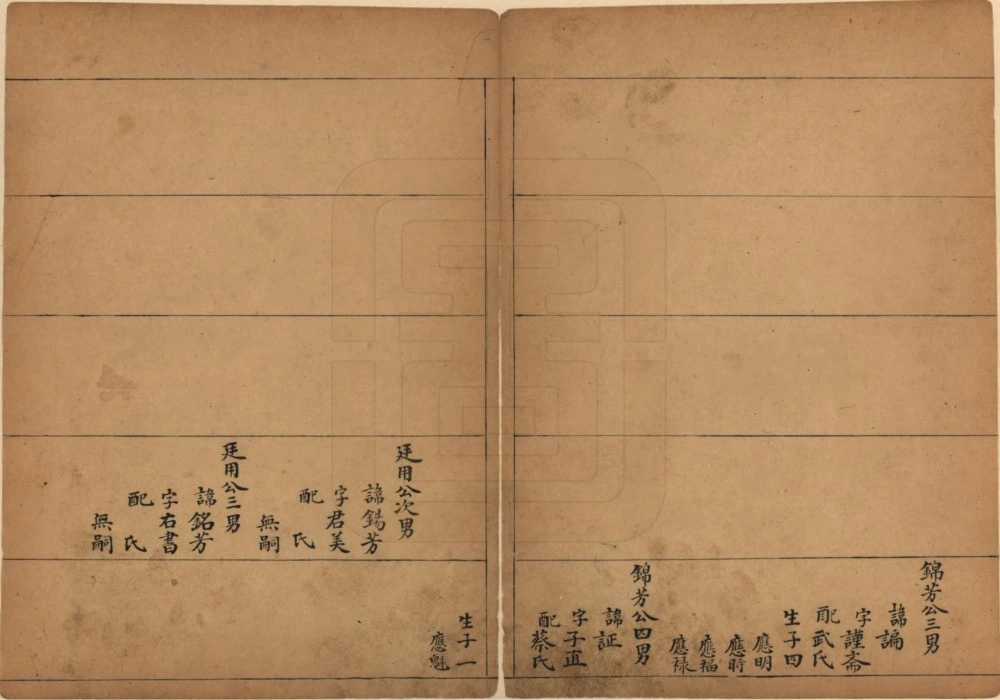 錦芳公三男
諱諞
字謹斋
配武氏
生子四
應明
應時
應福
應祿
錦芳公四男
諱証
字子直
配蔡氏
生子一
應魁
廷用公次男
諱錫芳
字君美
配 氏
無嗣
廷用公三男
諱銘芳
字右書
配 氏
無嗣